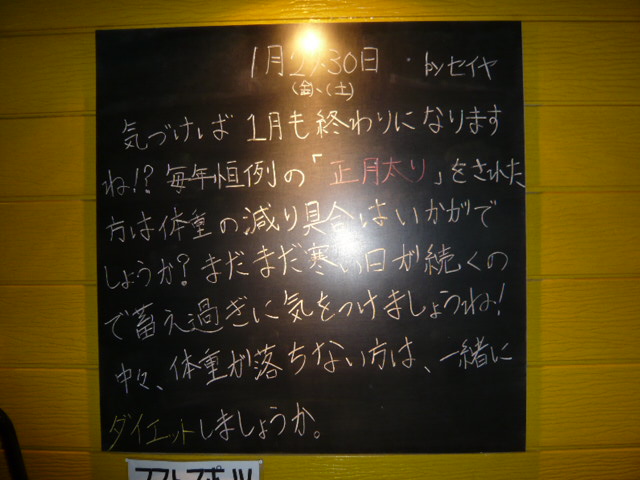 1月29.30日 ・byセイヤ
(金)、(土)
気づけば 1月も終わりになります
ね!?毎年恒例の「正月太り」をされた
方は体重の減り具合はいかがで
しょうか?まだまだ寒い日が続くの
で蓄え過ぎに気をつけましょうね!
中々、体重が落ちない方は、一緒に
ダイエットしましょうか。